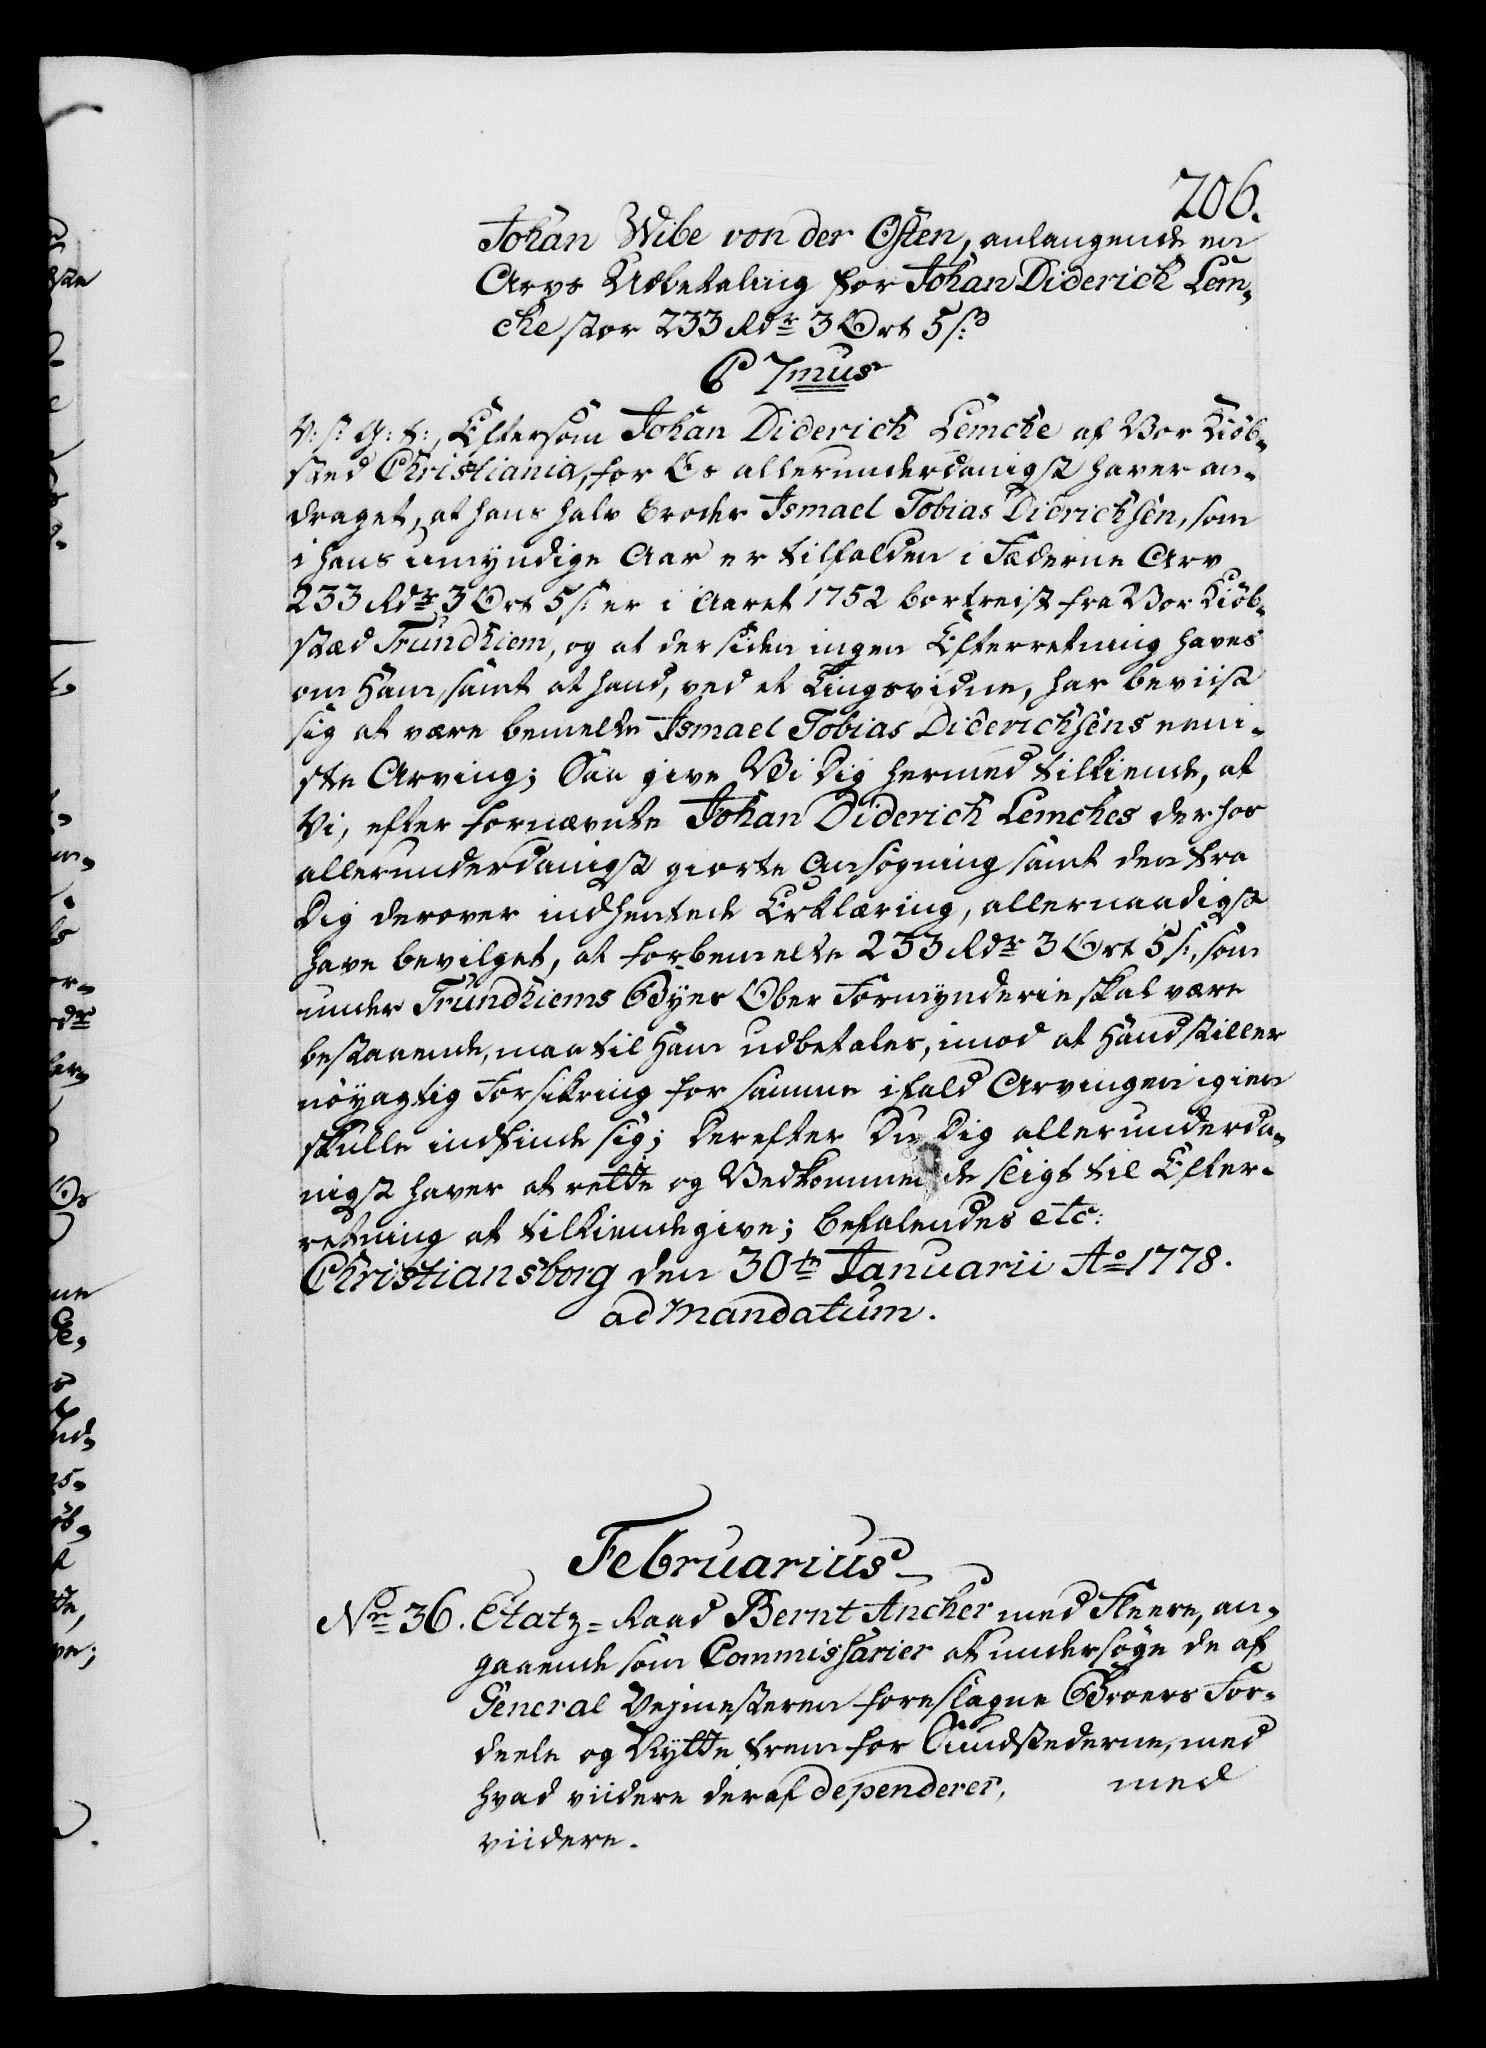 206.
Johan Wibe von der Osten, anlangende en
Arvs Udbetaling for Johan Diderich Lem-
cke stor 233 Rdr 3 Ort 5 s:
C 7mus
V: s: G: t:, Eftersom Johan Diderich Lemcke af Vor Kiöb-
sted Christiania, for Os allerunderdanigst haver an-
draget, at hans halv Broder Ismael Tobias Didrichsen, som
i hans umyndige Aar er tilfalden i Fæderne Arv
233 Rdr 3 Ort 5 s: er i Aaret 1752 bortreist fra Vor Kiöb-
stæd Trundhiem, og at der siden ingen Efterretning haves
om Ham, samt at hand, ved et Tingsvidne, har beviist
sig at være bemelte Ismael Tobias Diderichsens eeni-
ste Arving; Saa give Vi Dig hermed tilkiende, at
Vi, efter fornævnte Johan Diderich Lemckes derhos
allerunderdanigst giorte Ansøgning samt den fra
Dig derover indhentede Erklæring, allernaadigst
have bevilget, at forbemelte 233 Rdr 3 Ort 5 s:, som
under Trundhiems Byes Ober Formynderie skal være
bestaaende, maa til Ham udbetales, imod at Hand stiller
nöyagtig Forsikring for samme ifald Arvingen igien
skulle indfinde sig; Derefter Du Dig allerunderda-
nigst haver at rette og Vedkommende sligt til Efter-
retning at tilkiendegive; Befalendes etc:
Christiansborg den 30te Januarii Ao 1778.
ad Mandatum.
Februarius
No 36. Etatz-Raad Bernt Ancher med Fleere, an-
gaaende som Commissarier at undersøge de af
General Vejmesteren foreslagne Broers For-
deele og Nytte frem for Sundstederne, med
hvad viidere deraf dependerer, med
viidere.